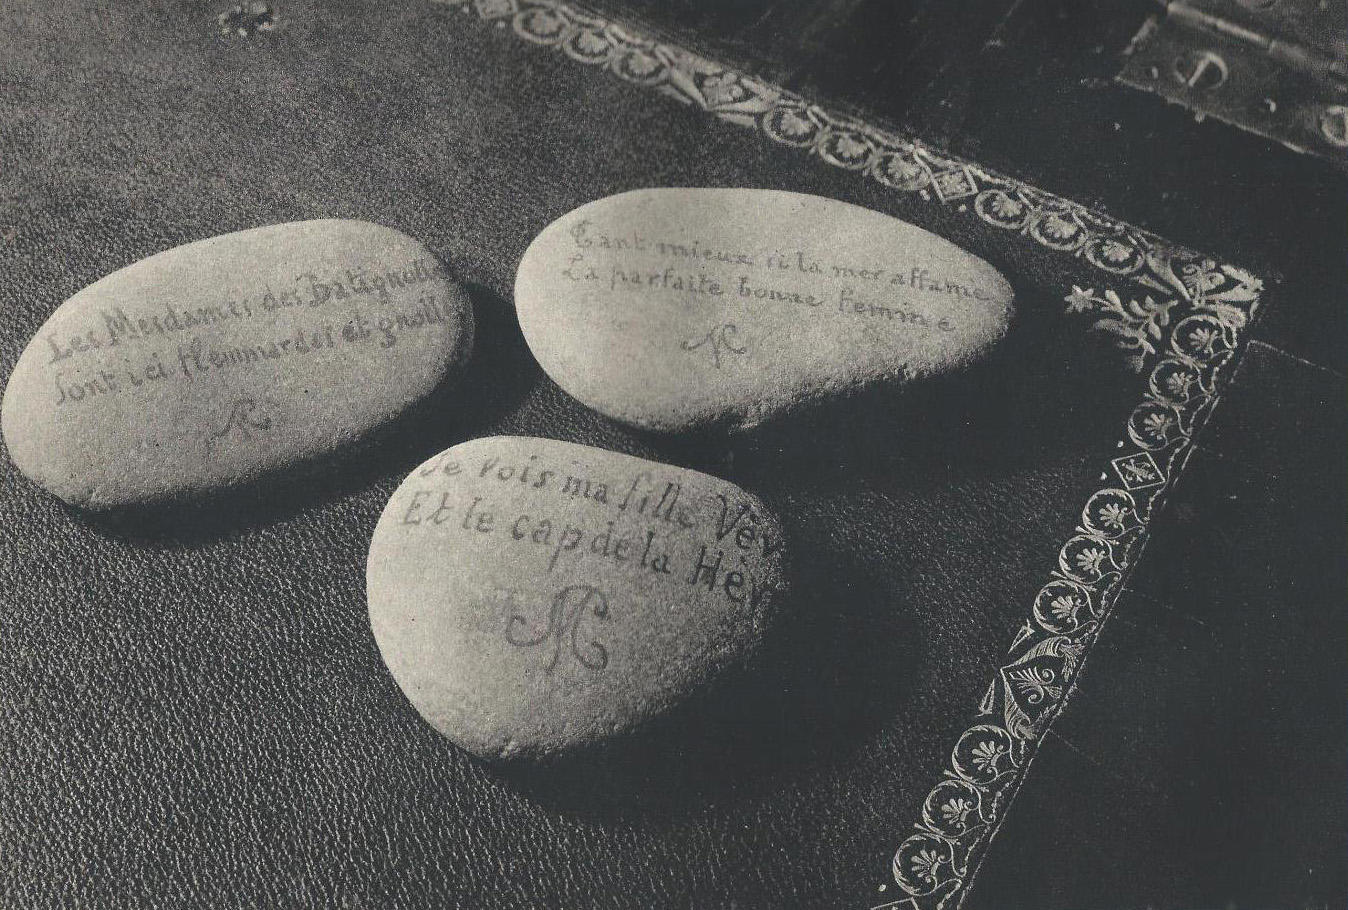 Les Mesdames des Batignolle
Sont ici flemmardes et gnoll
Tant mieux si la mer affame
La parfaite bonne Femme
Je vois ma fille Vèv
Et le cap de la Hèv